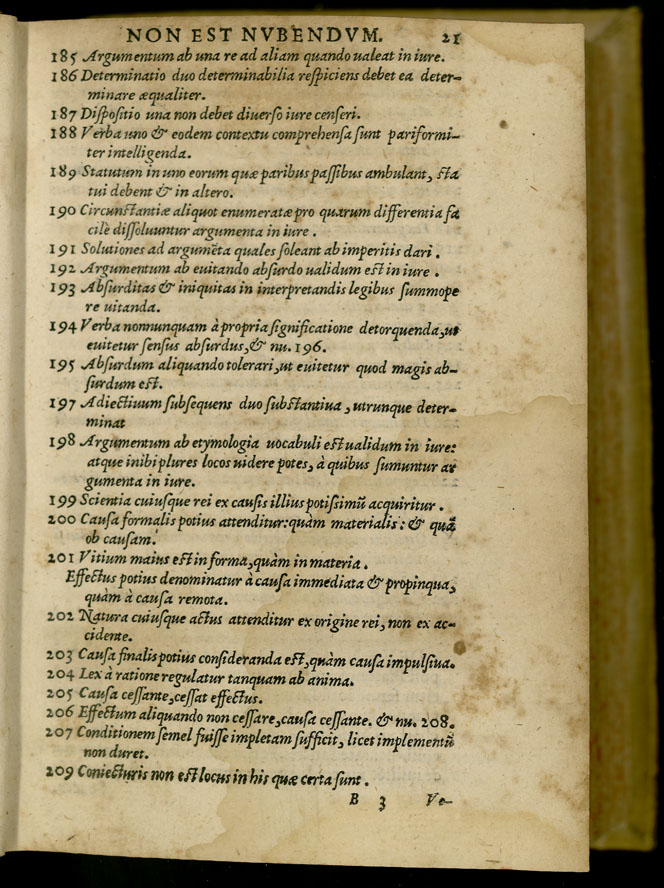 NON EST NVBENDVM. 21
185 Argumentum ab una re ad aliam quando ualeat in iure.
186 Determinatio duo determinabilia respiciens debet ea deter-
minare æqualiter.
187 Dispositio una non debet diuerso iure censeri.
188 Verba uno & eodem contextu comprehensa sunt pariformi-
ter intelligenda.
189 Statutum in uno eorum quæ paribus passibus ambulant, sta
tui debent & in altero.
190 Circunstantiæ aliquot enumeratæ pro quarum differentia fa
cilè dissoluuntur argumenta in iure .
191 Solutiones ad argumēta quales soleant ab imperitis dari .
192 Argumentum ab euitando absurdo ualidum est in iure .
193 Absurditas & iniquitas in interpretandis legibus summope
re uitanda.
194 Verba nonnunquam à propria significatione detorquenda,ut
euitetur sensus absurdus,& nu. 196.
195 Absurdum aliquando tolerari,ut euitetur quod magis ab-
surdum est.
197 Adiectiuum subsequens duo substantiua , utrunque deter-
minat
198 Argumentum ab etymologia uocabuli est ualidum in iure:
atque inibi plures locos uidere potes, à quibus sumuntur ar
gumenta in iure.
199 Scientia cuiusque rei ex causis illius potissimū acquiritur .
200 Causa formalis potius attenditur:quàm materialis: & quā
ob causam.
201 Vitium maius est in forma,quàm in materia .
Effectus potius denominatur à causa immediata & propinqua,
quàm à causa remota.
202 Natura cuiusque actus attenditur ex origine rei, non ex ac-
cidente.
203 Causa finalis potius consideranda est,quàm causa impulsiua.
204 Lex à ratione regulatur tanquam ab anima.
205 Causa cessante,cessat effectus.
206 Effectum aliquando non cessare,causa cessante. & nu. 208.
207 Conditionem semel fuisse impletam sufficit, licet implementū
non duret.
209 Coniecturis non est locus in his quæ certa sunt .
B 3 Ve-